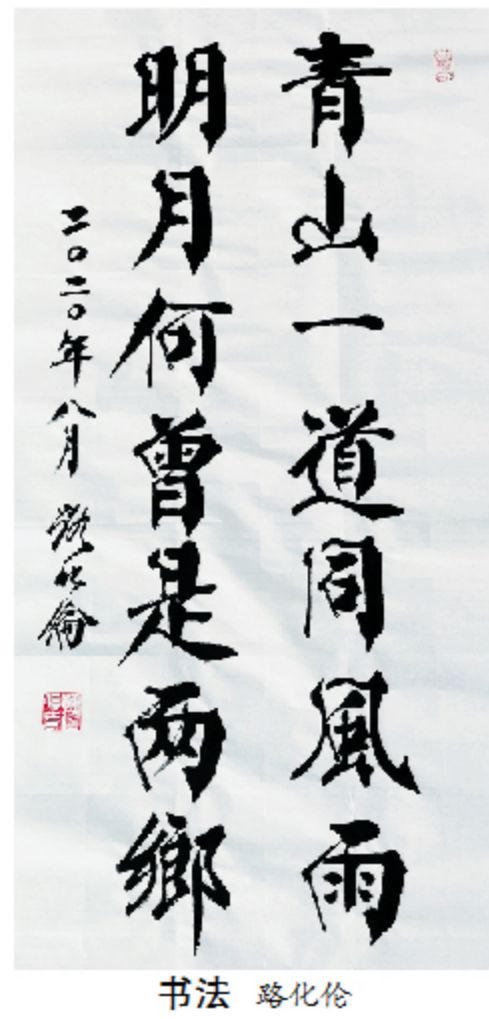 青山一道同風雨
明月何曾是兩鄉
二〇二〇年八月 路化倫
书法 路化伦